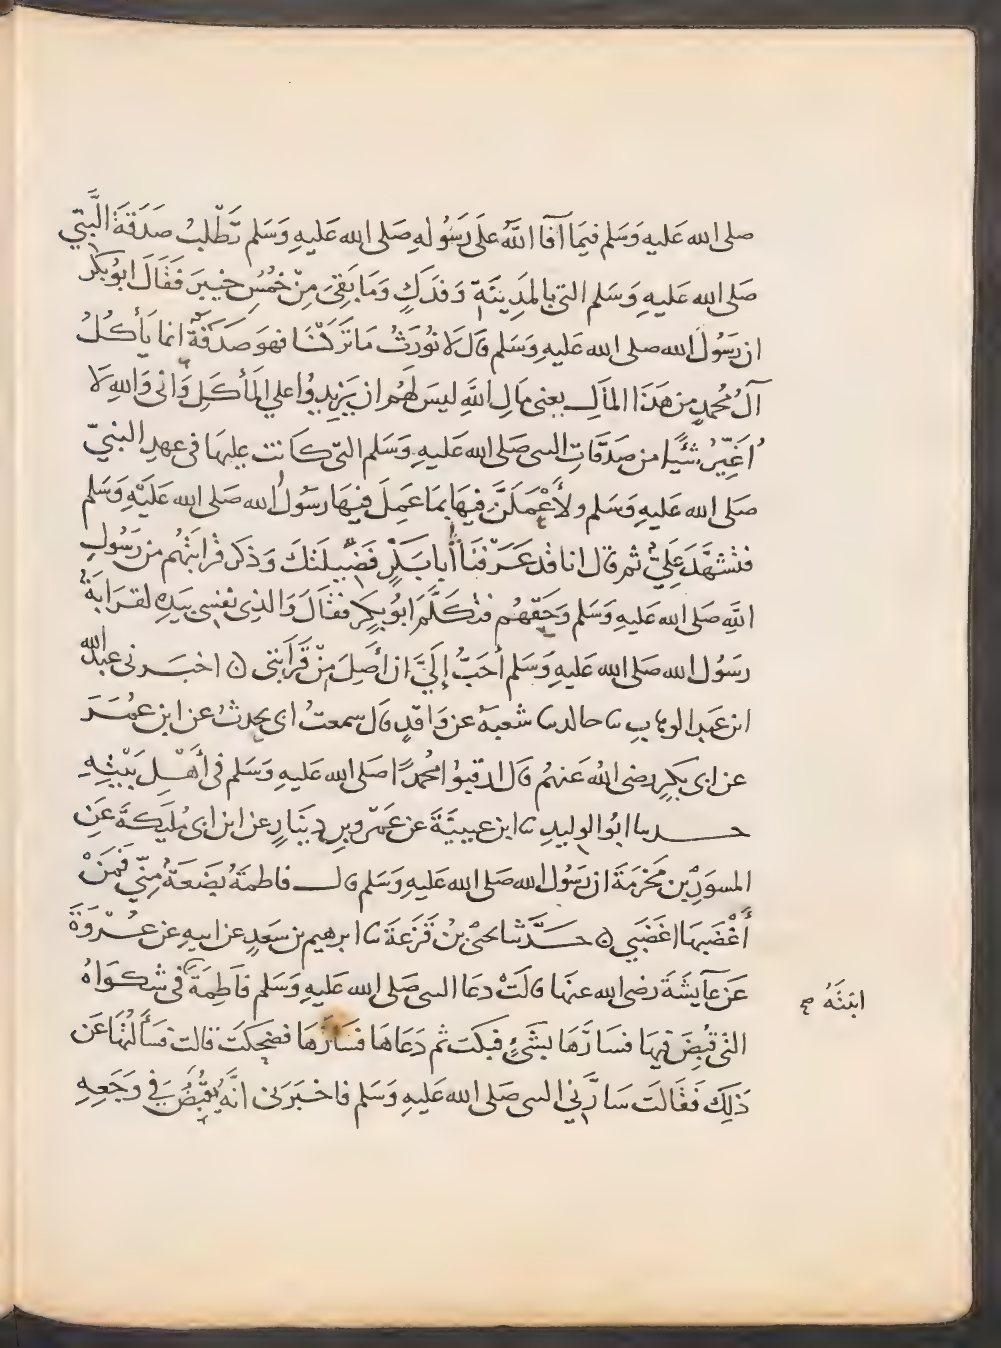 صلى الله عَليه وَسَلم فيمَا آفَا اللَّهُ علَى رَسُولهِ صَلى الله عَليهِ وَسَلم تَطْلبُ صَدَقَةَ النَّبيّ
صَلى الله عَليهِ وَسَلم التى بالمَدِينَةِ وَفدَكٍ وَمَا بَقىَ مِنْ خُمُسِ خيبَرَ فَقَالَ ابُو بَكر
ان رَسُولَ الله صلى الله عَليهِ وَسَلم قَالَ لَا نُورَثُ مَا تَرَكْنَا فهوَ صَدَقَةٌ انما يَأكُلُ
آلُ مُحمدٍ مِن هَذَا المَالِ يعنى مَالِ اللَّهِ ليسَ لَهُم ان يَزيدُوا على المَأكَلِ وَانى وَاللهِ لَا
اُغَيِّرُ شَيًا من صَدَقَاتِ النبى صَلى الله عَليهِ وَسَلم التى كَانت عليهَا فى عهدِ النبيّ
صَلى الله عَليهِ وَسَلم ولأَعْمَلَنَّ فيهَا بمَا عَمِلَ فيهَا رسُولُ الله صَلى الله عَليْهِ وَسَلم
فتشهَّدَ عَلِيٌّ ثم قَال انا قد عَرَفْنَا يَأبا بَكْرٍ فَضِيلَتَكَ وَذكر قرَابَتَهُم من رَسُولِ
اللَّهِ صَلى الله عَليهِ وَسَلم وَحَقهُم فتَكَلَّمَ ابُو بكرٍ فقَالَ وَالذى نفسى بيَدِهِ لقرَابَةُ
رَسُول الله صَلى الله عَليهِ وَسَلم أحَبُّ إِلَيَّ ان أَصِلَ مِنْ قَرَابَتى ۞ اخبَرنى عبدُ الله
ابن عَبد الوهابِ نا خالد نا شعبَةُ عن وَاقدٍ قَال سمعتُ ابى يحدثُ عن ابن عمُرَ
عن ابى بَكرٍ رضى اللهُ عَنهُم قَال ارقبُوا محُمدًا صَلى الله عَليهِ وَسَلم فى أَهْلِ بَيْتِهِ
حـــدنا ابُو الوليدِ نا ابن عيينَةَ عن عَمْرو بن دِينَارٍ عن ابن ابى مُليكَةَ عَنِ
المسوَرِ بن مَخرَمَةَ ان رَسُولَ الله صَلى الله عَليهِ وَسَلم قال فاطمَةُ بَضعَةٌ مِنّي فَمَنْ
أَغْضَبهَا اغضَبَني ۞ حــدَّثنا يحيَى بنُ قَزعَةَ نا ابرهيم بن سَعدٍ عن ابيهِ عن عُرْوَةَ
عَن عَآيشَةَ رضى الله عنهَا قالَتْ دعَا النبى صَلى الله عَليهِ وَسَلم فَاطِمَةَ فى شكوَاهُ
ابْنَتَهُ صح
التى قُبضَ فيهَا فسَارَّهَا بشَىْءٍ فبَكت ثم دَعَاهَا فسَارَّهَا فضَحِكَت قالت فسَأَلْتُهَا عَن
ذلِكَ فَقَالَت سَارَّنى النبى صَلى الله عَليهِ وَسَلم فاخبَرَنى انَّهُ يُقْبَضُ فى وَجَعِهِ